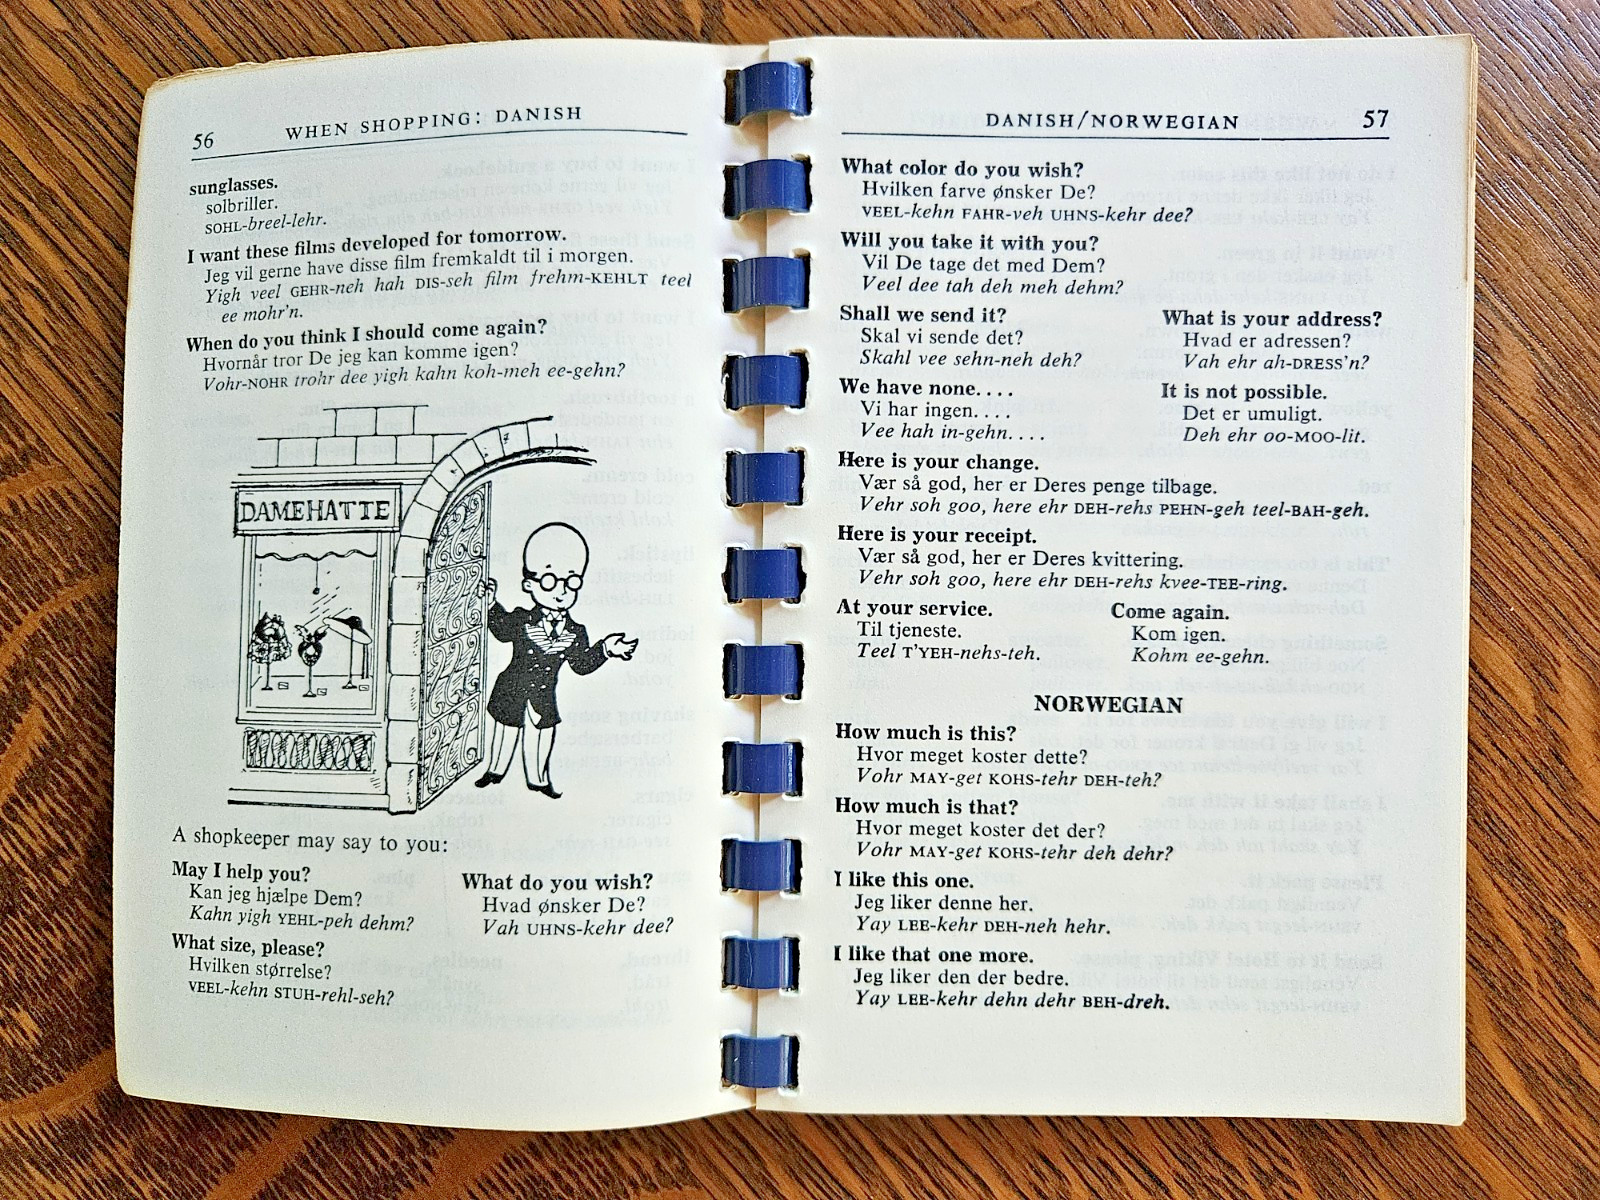 56 WHEN SHOPPING: DANISH
sunglasses.
solbriller.
SOHL-breel-lehr.
I want these films developed for tomorrow.
Jeg vil gerne have disse film fremkaldt til i morgen.
Yigh veel GEHR-neh hah DIS-seh film frehm-KEHLT teel
ee mohr'n.
When do you think I should come again?
Hvornår tror De jeg kan komme igen?
Vohr-NOHR trohr dee yigh kahn koh-meh ee-gehn?
DAMEHATTE
A shopkeeper may say to you:
May I help you?
Kan jeg hjælpe Dem?
Kahn yigh YEHL-peh dehm?
What do you wish?
Hvad ønsker De?
Vah UHNS-kehr dee?
What size, please?
Hvilken størrelse?
VEEL-kehn STUH-rehl-seh?
DANISH/NORWEGIAN 57
What color do you wish?
Hvilken farve ønsker De?
VEEL-kehn FAHR-veh UHNS-kehr dee?
Will you take it with you?
Vil De tage det med Dem?
Veel dee tah deh meh dehm?
Shall we send it?
Skal vi sende det?
Skahl vee sehn-neh deh?
What is your address?
Hvad er adressen?
Vah ehr ah-DRESS'n?
We have none. . . .
Vi har ingen. . . .
Vee hah in-gehn. . . .
It is not possible.
Det er umuligt.
Deh ehr oo-MOO-lit.
Here is your change.
Vær så god, her er Deres penge tilbage.
Vehr soh goo, here ehr DEH-rehs PEHN-geh teel-BAH-geh.
Here is your receipt.
Vær så god, her er Deres kvittering.
Vehr soh goo, here ehr DEH-rehs kvee-TEE-ring.
At your service.
Til tjeneste.
Teel T'YEH-nehs-teh.
Come again.
Kom igen.
Kohm ee-gehn.
NORWEGIAN
How much is this?
Hvor meget koster dette?
Vohr MAY-get KOHS-tehr DEH-teh?
How much is that?
Hvor meget koster det der?
Vohr MAY-get KOHS-tehr deh dehr?
I like this one.
Jeg liker denne her.
Yay LEE-kehr DEH-neh hehr.
I like that one more.
Jeg liker den der bedre.
Yay LEE-kehr dehn dehr BEH-dreh.